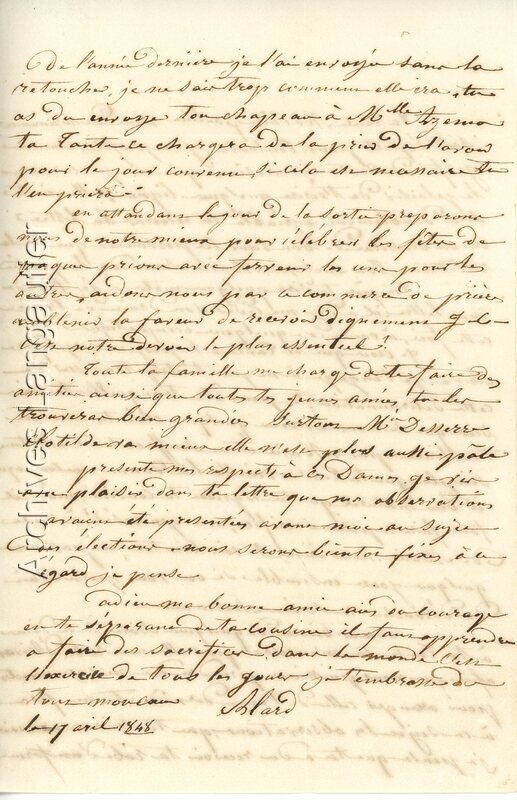 De l'année dernière je l'ai envoyée sans la
retouche, je ne sais trop comment elle ira, tu
as du envoye ton chapeau à Mlle Azema
ta Tante se chargera de la prier de l'avoir
pour le jour convenu, si cela est necessaire tu
l'en prieras
en attendant le jour de la sortie preparons
nous de notre mieux pour célébrer les fêtes de
paques prions avec ferveur les uns pour les
autres, aidons nous par ce commerce de prière
a obtenir la faveur de recevoir dignement J. C.
C'est notre devoir le plus essentiel!
Toute la famille me charge de te faire des
amitiés ainsi que toutes tes jeunes amies, tu les
trouveras bien grandes surtout Mlle Desserre
Clotilde va mieux elle n'est plus aussi pâle
presente mes respects à ces Dames, je vois
avec plaisir dans ta lettre que mes observations
avaient été presentées avant moi au sujet
des élections nous serons bientot fixés à cet
égard je pense
adieu ma bonne amie aies du courage
en te séparant de ta cousine il faut apprendre
a faire des sacrifices dans le monde c'est
l'exercice de tous les jours je t'embrasse de
tout mon cœur
Alard
le 17 avril 1848
Archives Langautier